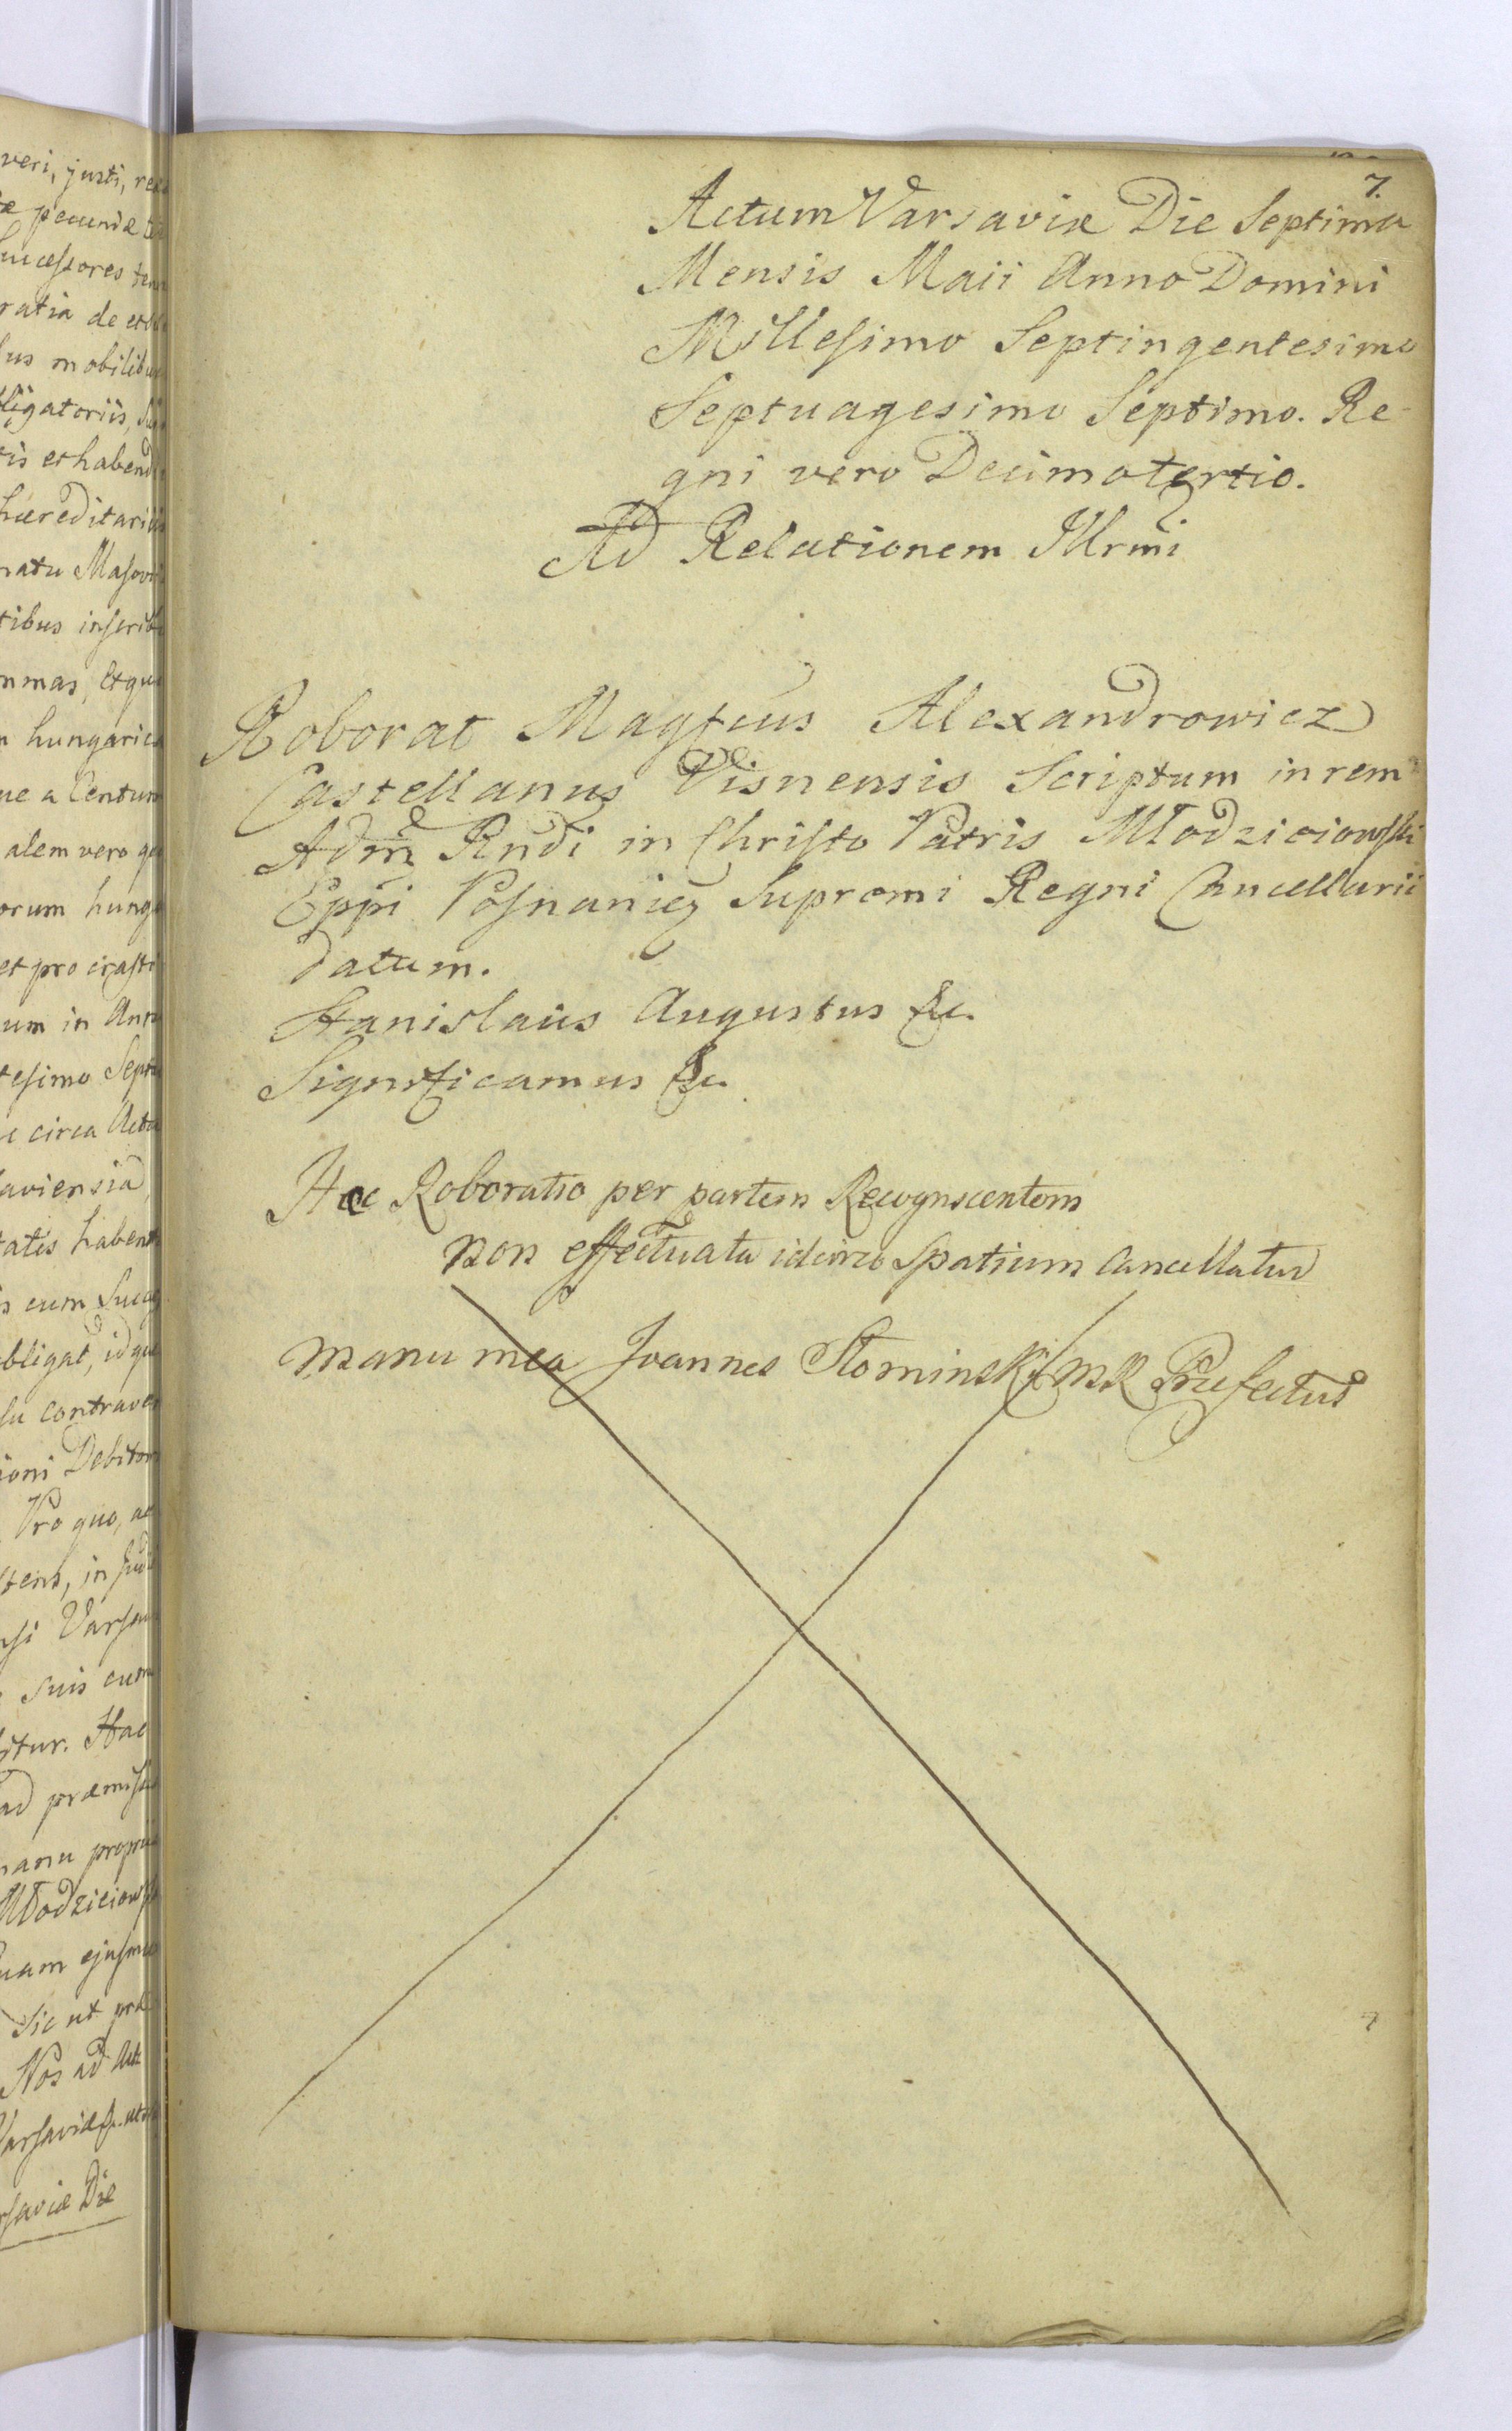 veri, justi, re
æ pecuniæ
successores
ratia de
us mobilib
ligatoriis,
tis et habend
hæreditari
natu Masov
tibus inscrib
mmas, Et qu
n hungaric
ue a Centum
alem vero
orum hung
et pro crasti
um in Ann
tesimo Sept
c circa Act
aviensia
tatis haben
s cum Succ
bligat, id qu
su contrave
ioni Debitor
Pro quo, a
tens, in Jud
nsi Varsav
suis cum
itur. Hac
ad præmiss
manu propri
Młodzieiows
uam ejusm
Sic ut præ
Nos ad Act
Varsaviæ
rsaviæ Die
7.
Actum Varsaviæ Die Septima
Mensis Maii Anno Domini
Millesimo Septingentesimo
Septuagesimo Septimo. Re-
gni vero Decimotertio.
Ad Relationem Illrmi
Roborat Magfcus Alexandrowicz
Castellanus Visnensis Scriptum in rem
Adm Rndi in Christo Patris Młodzieiowski
Eppi Posnanien Supremi Regni Cancellarii
datum.
Stanislaus Augustus &c.
Significamus &c.
Hæc Roboratio per partem Recognscentem
non effectuata idcirco Spatium Cancellatur
manu mea Joannes Słominski MR Præfectus
7